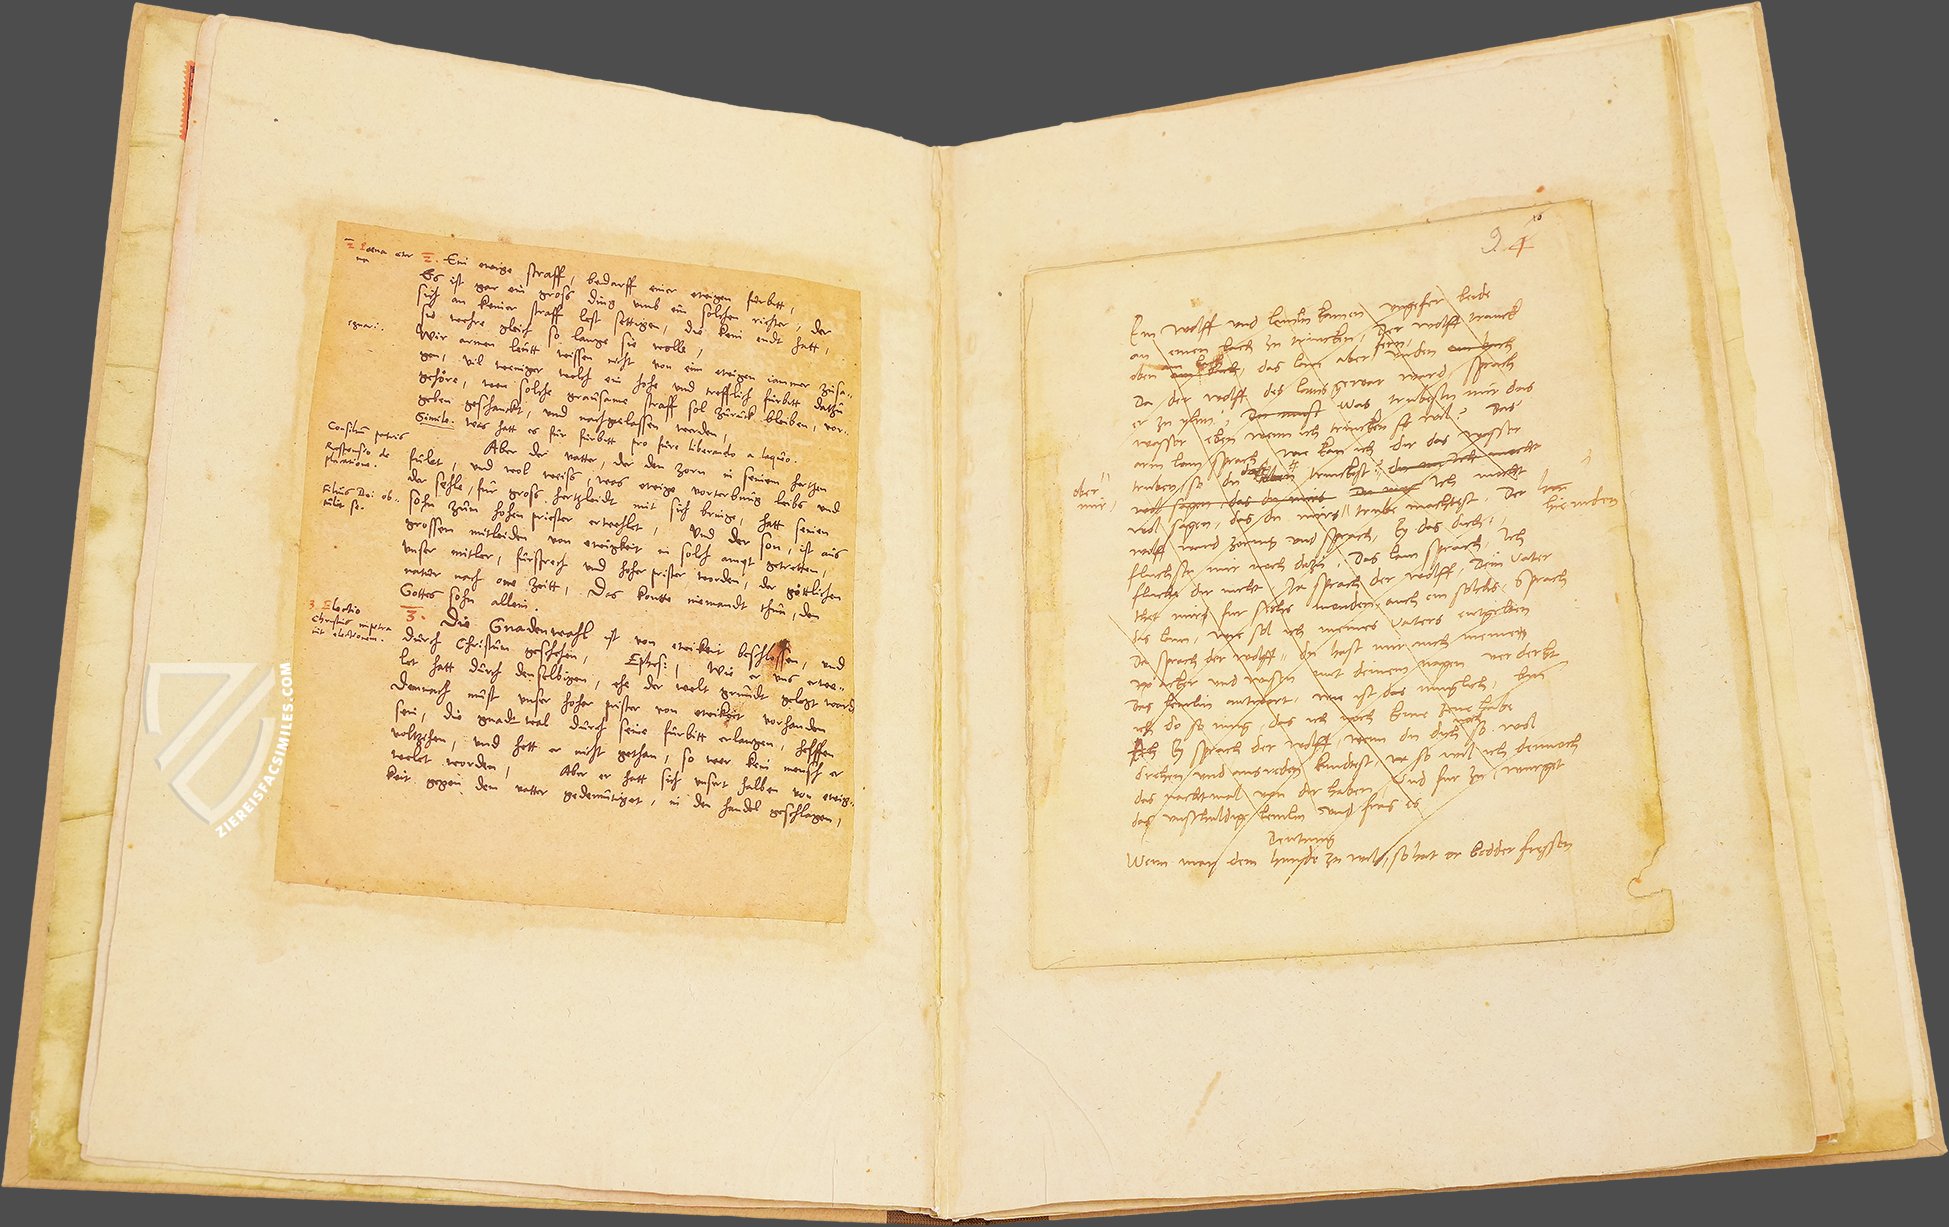 2 Poena aeter
na
2. Ein ewige straff, bedarff einer ewigen fürbitt,
Es ist gar ein gross ding umb ein solchen richter, der
sich an keiner straff lest settigen, die kein endt hatt,
sie wehre gleich so lange sie wolle,
Wir armen leütt wissen nicht von eim ewigen iammer zusa-
gen, vil weniger welch ein hohe und trefflich fürbitt datzu
gehöre, wen solche grausame straff sol zürück bleiben, vor-
geben geschenckt, und nachgelassen werden,
Simile. was hatt es für fürbitt pro fure liberando a laqueo.
Consilium patris
Aber der vatter, der den zorn in seinem hertzen
fület, und wol weiss, was ewige vorterbung leibs und
der sehle, für gross hertzleidt mit sich bringe, hatt seinen
Filius Dei ob-
tulit se.
sohn zum hohen priester erwehlet, Und der son, ist aus
grossem mitleiden von ewigkeit in solch ampt getretten,
unser mitler, fürsprech und hoher prister worden, der göttlichen
natur nach one zeitt, Das kontte niemandt thun, den
Gottes sohn allein.
3. Electio
Christus impetra
vit electionem.
3. Die Gnadenwahl ist von ewikeit beschlossen, und
durch Christum geschehen, Ephes: 1, Wie er uns erwe-
let hatt durch denselbigen, ehe der welt grundt gelegt ward
Demnach müst unser hoher prister von ewikeit vorhanden
sein, die gnadt wal durch seine fürbitt erlangen, helffen
voltzihen, und hett er nicht gethan, so wer kein mensch er
welet worden, Aber er hatt sich unsert halben von ewig-
keit gegen dem vatter gedemütiget, in den handel geschlagen,
24
Ein wolff und lemlin kamen ungefer beide
an einen bach zu trincken, Der wolff tranck
oben am bach, das lam aber fern unden am bach
Da der wolff des lams gewar ward, sprach
er zu yhm, Du must Was trubestu mir das
wasser eben wenn ich trincken sol? Das
arm lam sprach, wie kan ich dir das wasser
truben, so du oben trinckest
aber
mir
wol sagen, das du mirs trube machtest, Der
hie niden
wolff ward zornig und sprach, Ey das dich,
fluchstu mir noch dazu, Das lam sprach, Ich
fluche dir nicht, Ja sprach der wolff, Dein Vater
thet mirs fur sechs monden auch ein solchs, sprach
das lam, wie sol ich meines Vaters entgelten
Da sprach der wolff, du hast mir auch meinen
acker und wisen mit deinem nagen verderbt
Das lemlin antwort, wie ist das muglich, bin
ich do so iung, das ich noch keine zene habe
Ey sprach der wolff, wenn du dich noch so wol
drehen und ausreden kundest, so wil ich dennoch
das nachtmal von dir haben, Und fur zu, wurget
das unschuldige lemlin und fras es
Deutung
Wenn man dem hunde zu wil, so hat er ledder fressen
ZIEREISFACSIMILES.COM